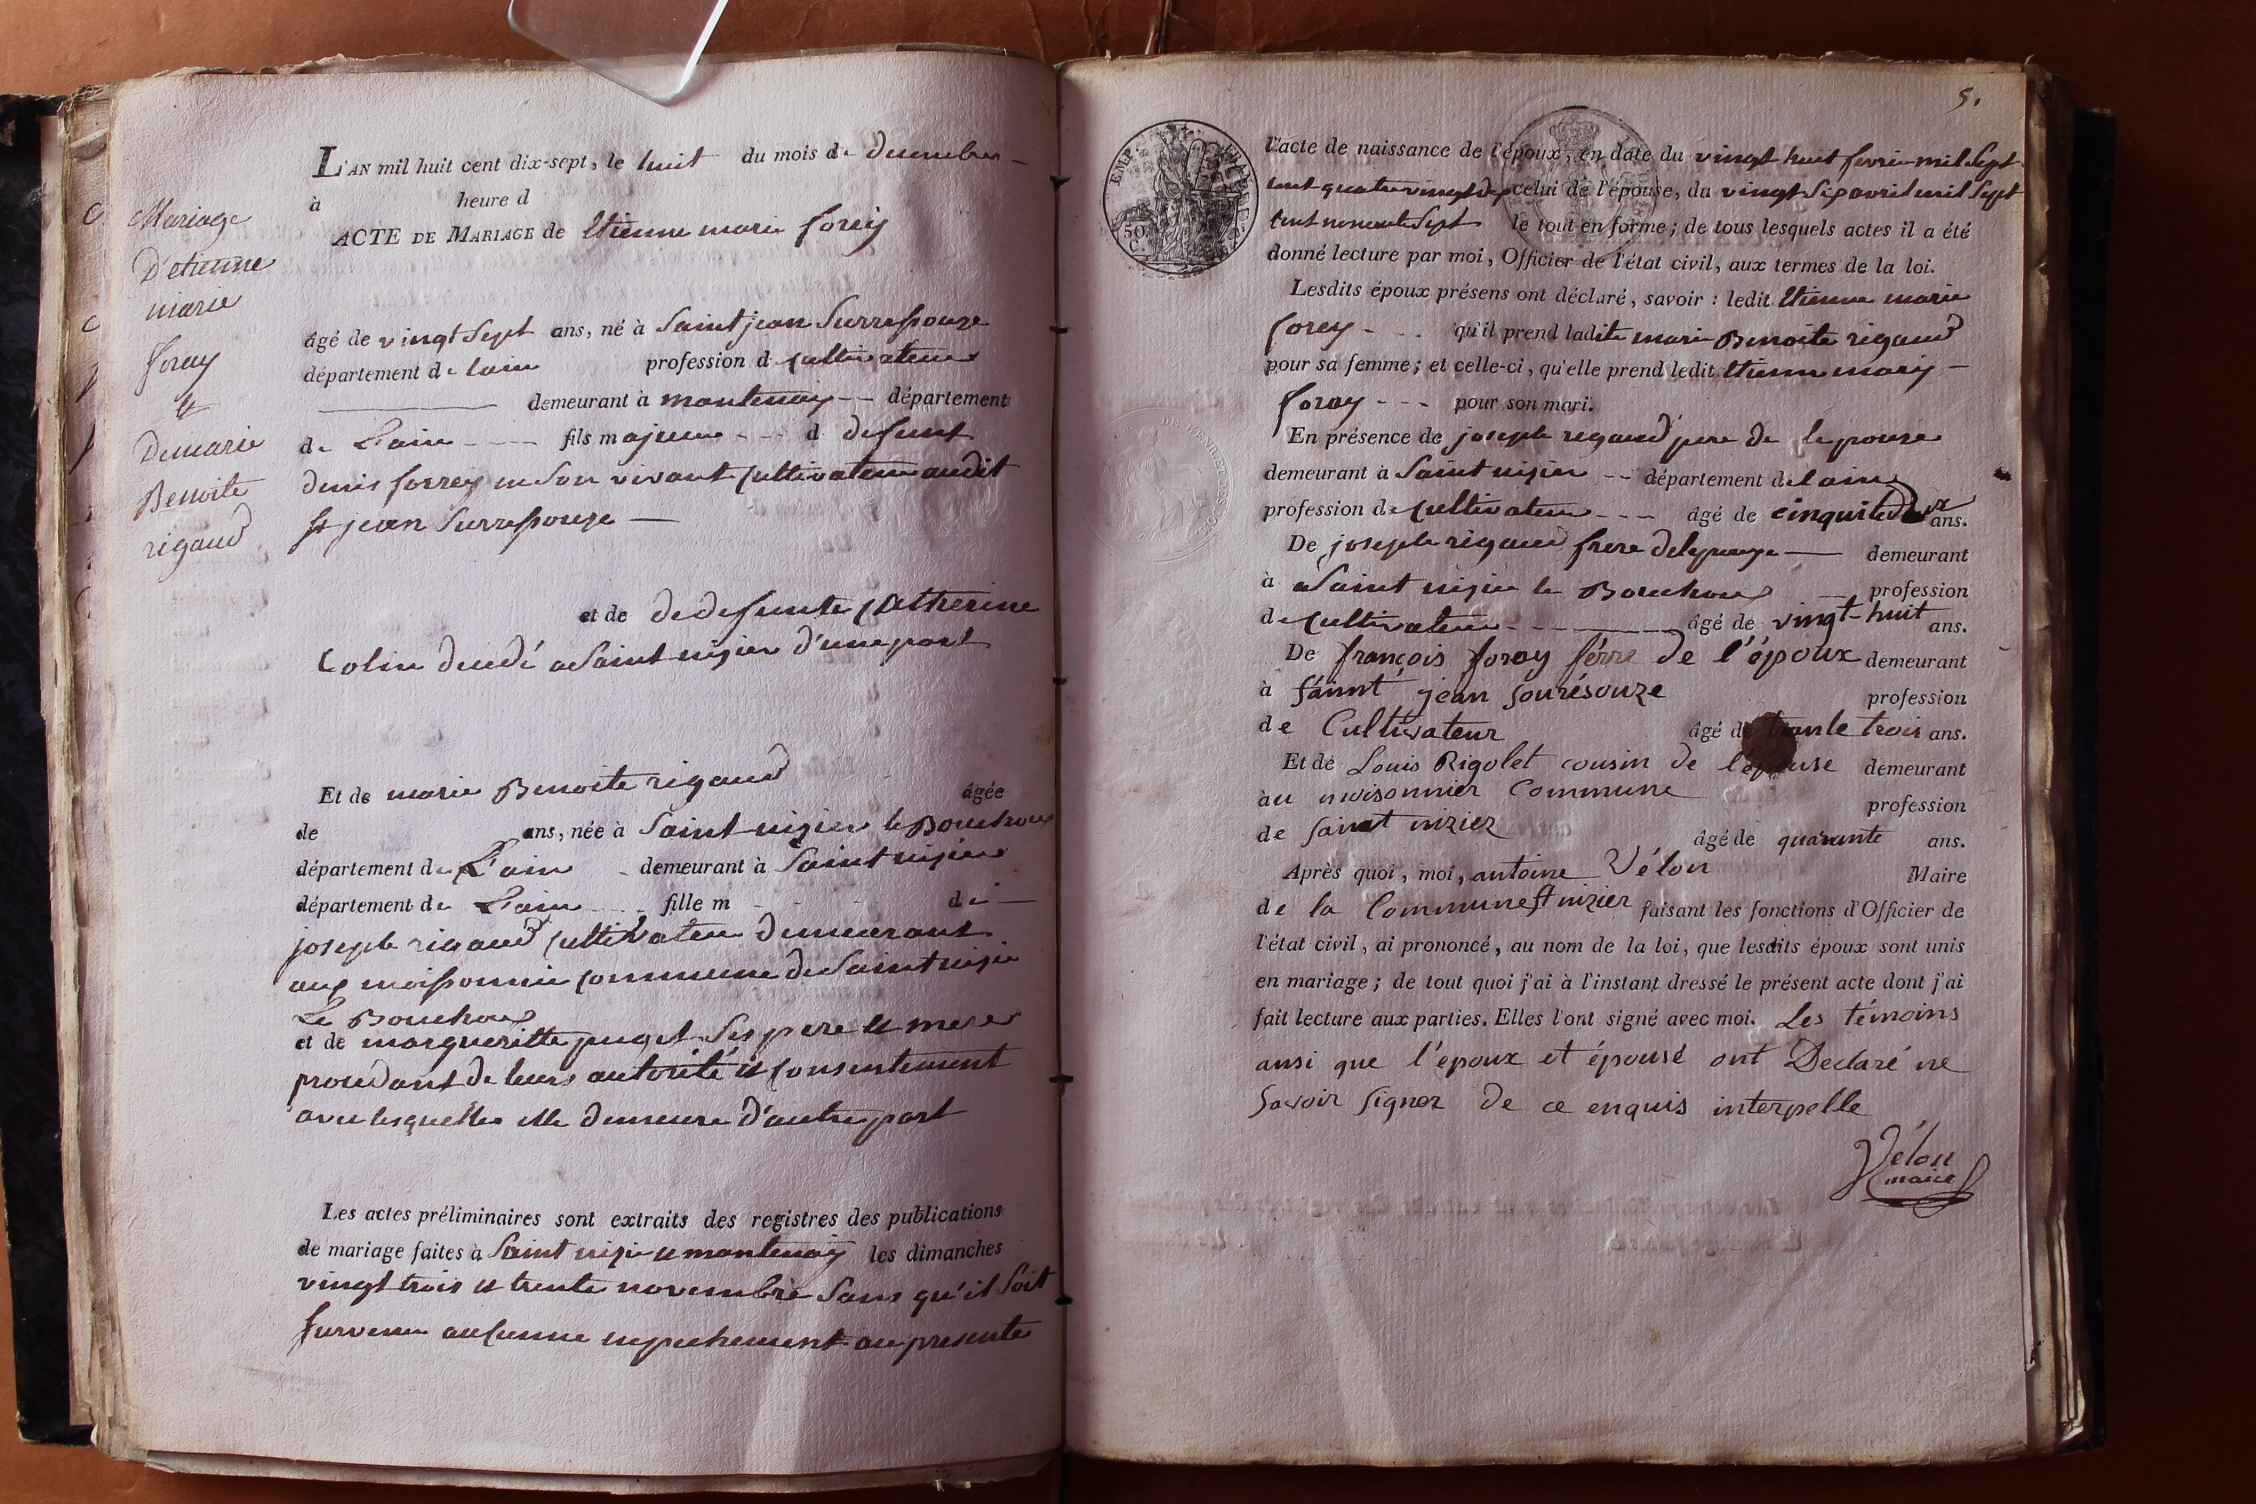 L'AN mil huit cent dix-sept, le huit du mois de decembre
à heure d
ACTE DE MARIAGE de Etienne marie forey
Mariage
D'etienne
marie
foray
et
De marie
Benoite
rigaud
âgé de vingt Sept ans, né à Saint jean Surressouze
département de lain profession d cultivateur
demeurant à montenay département
de L'ain fils majeur d defunt
denis forrey en Son vivant Cultivateur audit
St jean Surressouze
et de de defunte Catherine
Colin decedé a Saint nizier d'une part
Et de marie Benoite rigaud âgée
de ans, née à Saint nizier le Bouchoux
département de L'ain demeurant à Saint nizier
département de L'ain fille m de
joseph rigaud Cultivateur Demeurant
aux moissonnier Commune de Saint nizier
Le Bouchoux
et de margueritte puget Ses pere et mere
procedant de leurs autorité et Consentement
avec lesquelles elle demeure d'autre part
Les actes préliminaires sont extraits des registres des publications
de mariage faites à Saint nizier et montenay les dimanches
vingt trois et trente novembre Sans qu'il Soit
Survenu aucunne empechement au presente
5.
EMP.
50
C.
l'acte de naissance de l'époux, en date du vingt huit fevrier mil Sept
cent quatre vingt dix celui de l'épouse, du vingt Six avril mil Sept
Cent nonente Sept le tout en forme; de tous lesquels actes il a été
donné lecture par moi, Officier de l'état civil, aux termes de la loi.
Lesdits époux présens ont déclaré, savoir : ledit Etienne marie
forey qu'il prend ladite marie Benoite rigaud
pour sa femme; et celle-ci, qu'elle prend ledit Etienne marie
foray pour son mari.
En présence de joseph regaud pere de lepouse
demeurant à Saint nizier département de lain
profession de Cultivateur âgé de cinquante deux ans.
De joseph rigaud frere de lepouse demeurant
à a Saint nizier le Bouchoux profession
de Cultivateur âgé de vingt-huit ans.
De françois foray férre de l'époux demeurant
à saint jean sourésouze profession
de Cultivateur âgé de trante trois ans.
Et de Louis Rigolet cousin de l'épouse demeurant
àu moisonnier Commune profession
de saint nizier âgé de quarante ans.
Après quoi, moi, antoine Vélon Maire
de la Commune St nizier faisant les fonctions d'Officier de
l'état civil, ai prononcé, au nom de la loi, que lesdits époux sont unis
en mariage; de tout quoi j'ai à l'instant dressé le présent acte dont j'ai
fait lecture aux parties. Elles l'ont signé avec moi. Les témoins
ansi que l'epoux et épouse ont Declaré ne
Savoir signer de ce enquis interpelle
Vélon
maire